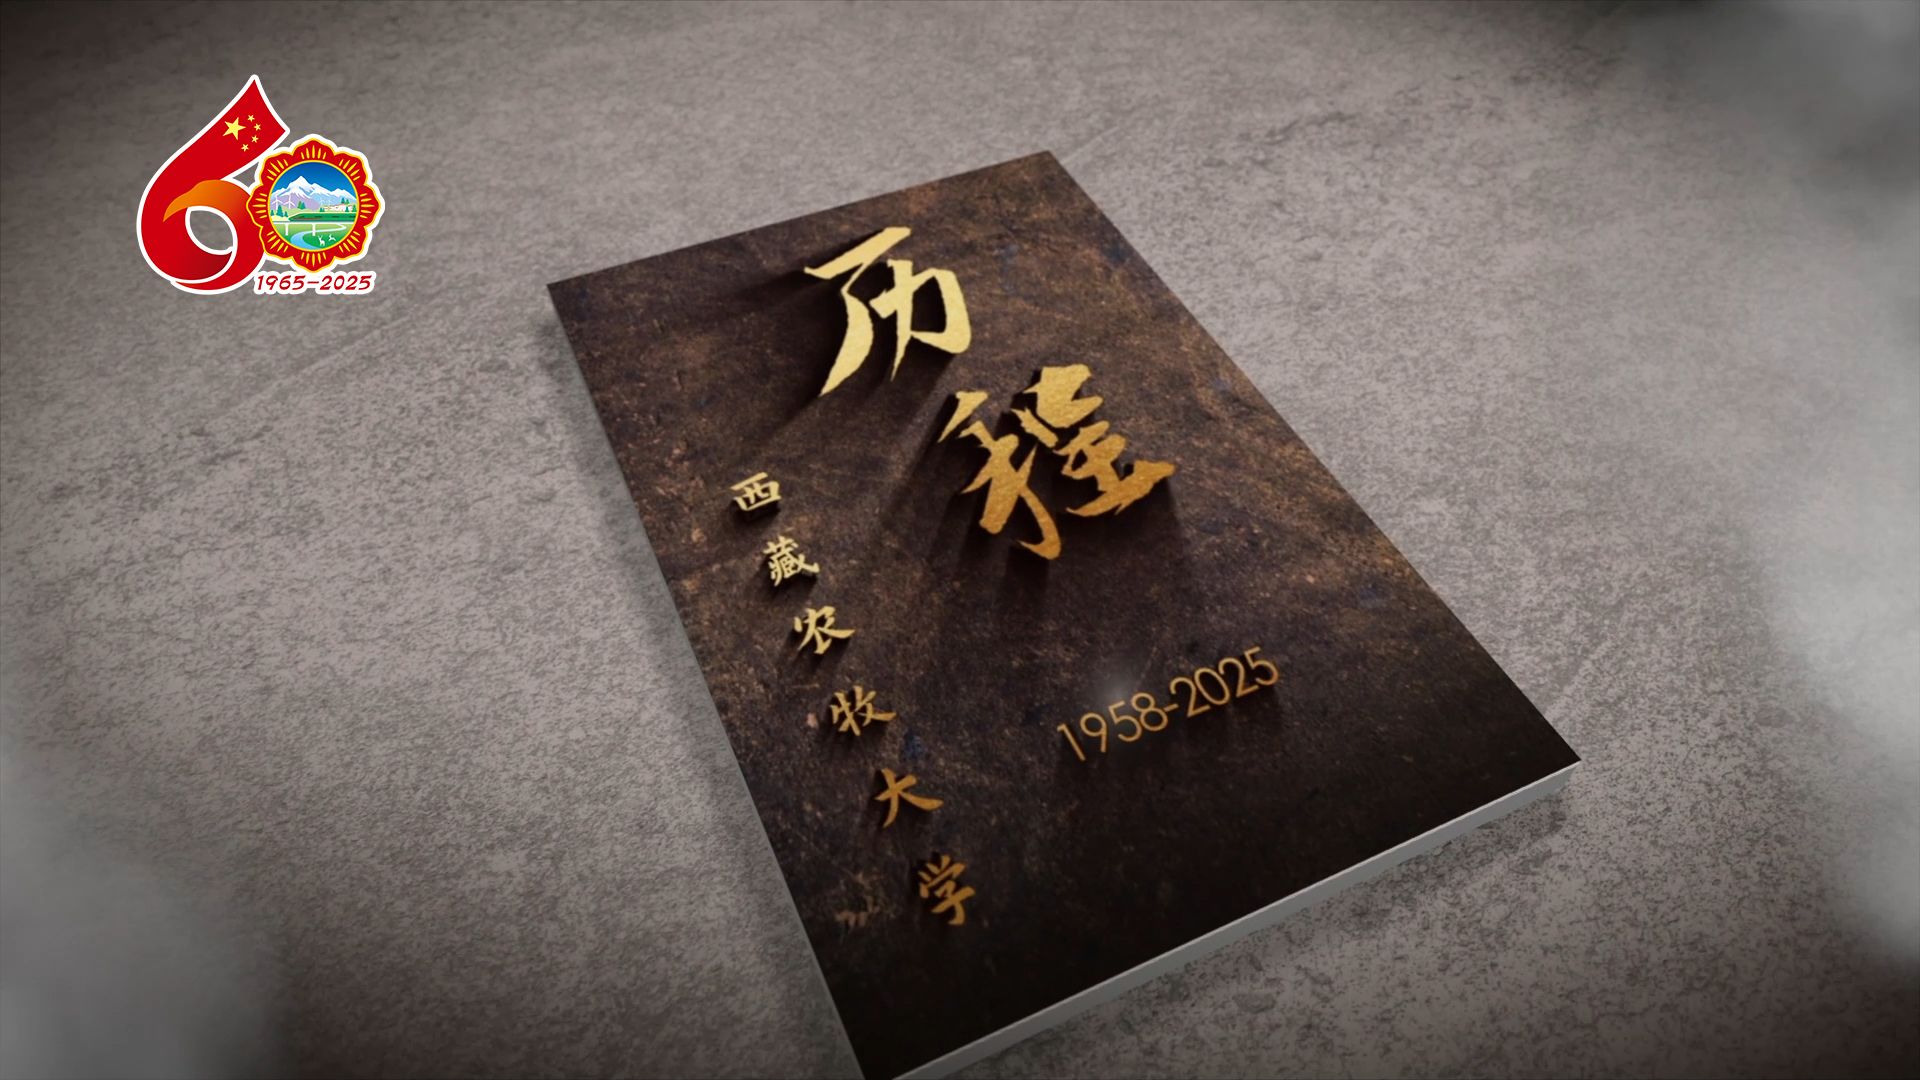 60
1965-2025
历程
西藏农牧大学
1958-2025